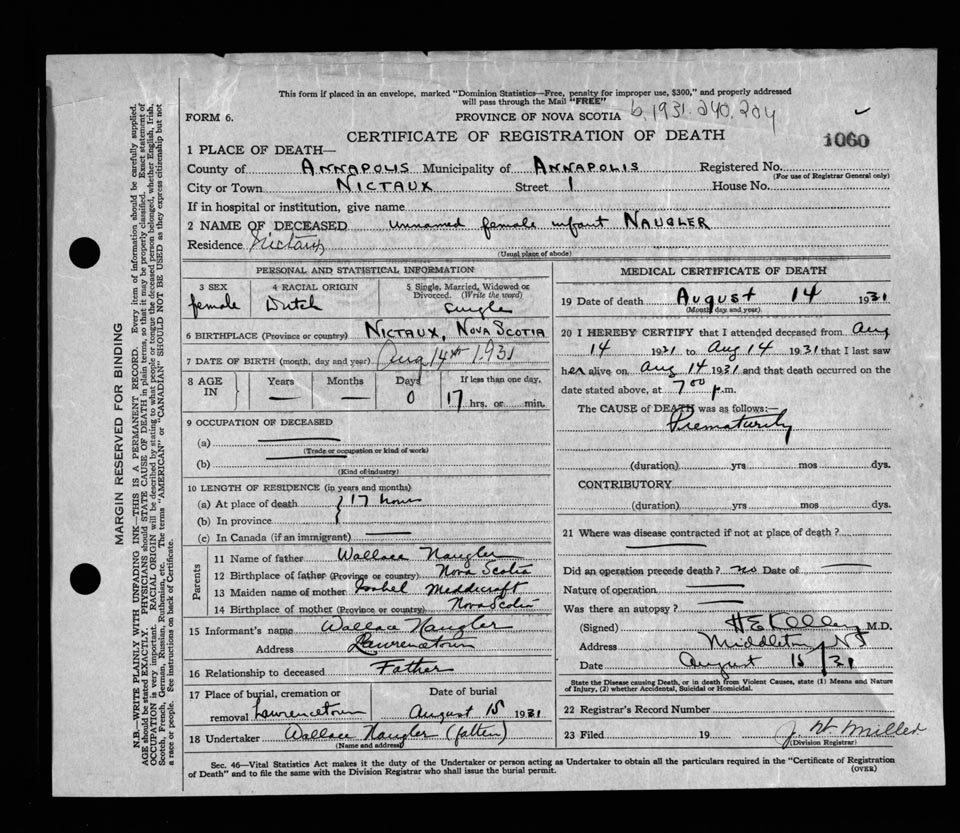 This form if placed in an envelope, marked "Dominion Statistics—Free, penalty for improper use, $300," and properly addressed
will pass through the Mail "FREE"
FORM 6. PROVINCE OF NOVA SCOTIA b. 1931. 240. 204
CERTIFICATE OF REGISTRATION OF DEATH 1060
1 PLACE OF DEATH—
County of ANNAPOLIS Municipality of ANNAPOLIS Registered No.
(For use of Registrar General only)
City or Town NICTAUX Street 1 House No.
If in hospital or institution, give name
2 NAME OF DECEASED unnamed female infant NAUGLER
Residence Nictaux
(Usual place of abode)
PERSONAL AND STATISTICAL INFORMATION
3 SEX 4 RACIAL ORIGIN 5 Single, Married, Widowed or
Divorced. (Write the word)
female Dutch Single
6 BIRTHPLACE (Province or country) NICTAUX, NOVA SCOTIA
7 DATE OF BIRTH (month, day and year) Aug 14th 1931
8 AGE IN Years Months Days If less than one day,
— — 0 17 hrs. or min.
9 OCCUPATION OF DECEASED
(a)
(Trade or occupation or kind of work)
(b)
(Kind of industry)
10 LENGTH OF RESIDENCE (in years and months)
(a) At place of death } 17 hours
(b) In province
(c) In Canada (if an immigrant) —
Parents
11 Name of father Wallace Naugler
12 Birthplace of father (Province or country) Nova Scotia
13 Maiden name of mother Isabel Meddicroft
14 Birthplace of mother (Province or country) Nova Scotia
15 Informant's name Wallace Naugler
Address Lawrencetown
16 Relationship to deceased Father
17 Place of burial, cremation or Date of burial
removal Lawrencetown August 15 1931
18 Undertaker Wallace Naugler (father)
(Name and address)
MEDICAL CERTIFICATE OF DEATH
19 Date of death August 14 1931
(Month, day and year)
20 I HEREBY CERTIFY that I attended deceased from Aug
14 1931 to Aug 14 1931 that I last saw
her alive on Aug 14 1931 and that death occurred on the
date stated above, at 7 00 p.m.
The CAUSE of DEATH was as follows:—
Prematurity
(duration) yrs mos dys.
CONTRIBUTORY
(duration) yrs mos dys.
21 Where was disease contracted if not at place of death?
Did an operation precede death? no Date of —
Nature of operation —
Was there an autopsy? —
(Signed) H E Kelley M.D.
Address Middleton NS
Date August 15/31
State the Disease causing Death, or in death from Violent Causes, state (1) Means and Nature
of Injury, (2) whether Accidental, Suicidal or Homicidal.
22 Registrar's Record Number
23 Filed 19 J. W. Miller
(Division Registrar)
Sec. 46—Vital Statistics Act makes it the duty of the Undertaker or person acting as Undertaker to obtain all the particulars required in the "Certificate of Registration
of Death" and to file the same with the Division Registrar who shall issue the burial permit.
(OVER)
MARGIN RESERVED FOR BINDING
N.B.—WRITE PLAINLY WITH UNFADING INK—THIS IS A PERMANENT RECORD. Every item of information should be carefully supplied.
AGE should be stated EXACTLY. PHYSICIANS should STATE CAUSE OF DEATH in plain terms, so that it may be properly classified. Exact statement of
OCCUPATION is very important. RACIAL ORIGIN will be described by stating to what people or tongue the deceased person belonged, whether English, Irish,
Scotch, French, German, Russian, Ruthenian, etc. The terms "AMERICAN" or "CANADIAN" SHOULD NOT BE USED as they express citizenship but not
a race or people. See instructions on back of Certificate.